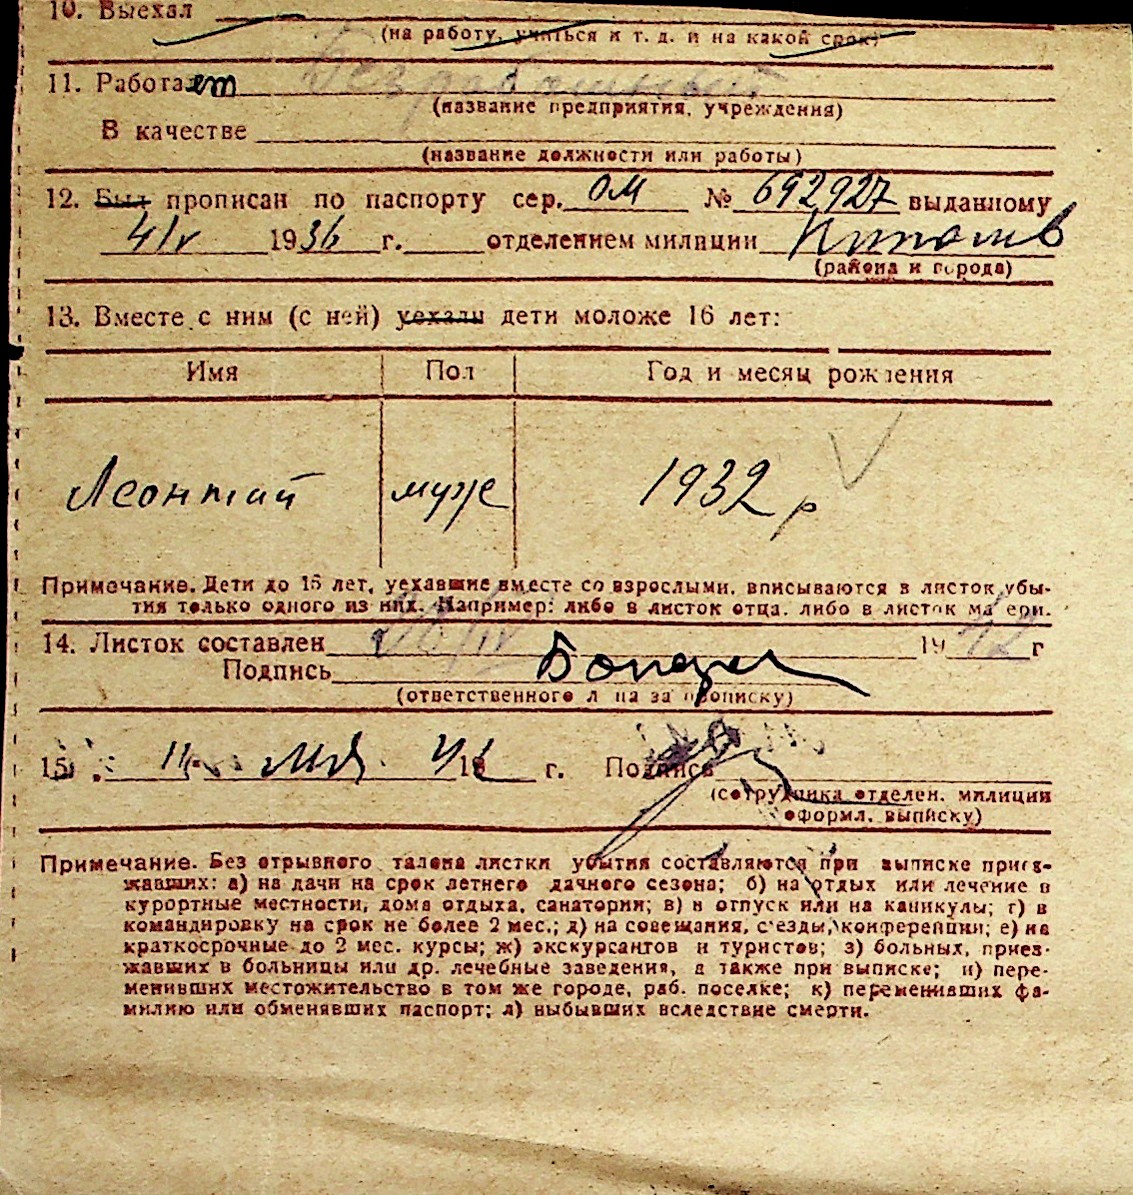 10. Выехал
(на работу, учиться и т. д. и на какой срок)
11. Работает
(название предприятия, учреждения)
В качестве
(название должности или работы)
12. Был прописан по паспорту сер. ОМ № 692927 выданному
4/V 1936 г. отделением милиции
(района и города)
13. Вместе с ним (с ней) уехали дети моложе 16 лет:
Имя Пол Год и месяц рождения
Леонтий муж 1932 г
Примечание. Дети до 16 лет, уехавшие вместе со взрослыми, вписываются в листок убы-
тия только одного из них. Например: либо в листок отца, либо в листок матери.
14. Листок составлен 1942 г
Подпись
(ответственного лица за прописку)
15. 11 г. Подпись
(сотрудника отделен. милиции
оформл. выписку)
Примечание. Без отрывного талона листки убытия составляются при выписке приез-
жавших: а) на дачи на срок летнего дачного сезона; б) на отдых или лечение в
курортные местности, дома отдыха, санатории; в) в отпуск или на каникулы; г) в
командировку на срок не более 2 мес.; д) на совещания, съезды, конференции; е) на
краткосрочные до 2 мес. курсы; ж) экскурсантов и туристов; з) больных, приез-
жавших в больницы или др. лечебные заведения, а также при выписке; и) пере-
менивших местожительство в том же городе, раб. поселке; к) переменивших фа-
милию или обменявших паспорт; л) выбывших вследствие смерти.